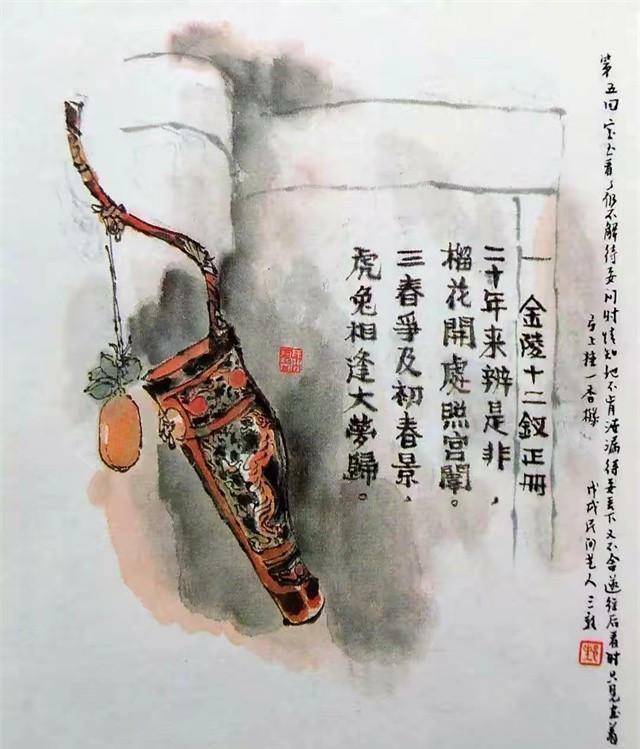 第五回宝玉看了仍不解待要问时情知他不肯泄漏待要丢下又不舍遂往后看时只见画着
弓上挂一香橼
戊戌民间艺人三
金陵十二釵正冊
二十年来辨是非，
榴花開處照宫闈。
三春爭及初春景，
虎兔相逢大夢歸。